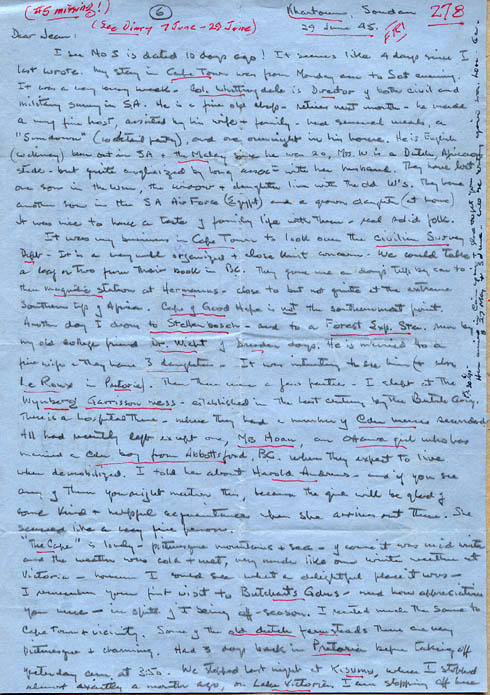 (#5 missing!)
6
Khartoum Sudan
278
(See Diary 7 June - 29 June)
29 June 45.
Dear Jean:
I see No 5 is dated 10 days ago! It seems like 4 days since I
last wrote. My stay in Cape Town was from Monday am to Sat evening.
It was a very busy week - Col. Whittingdale is Director of both civil and
military survey in SA. He is a fine old chap - retires next month - he made
a very fine host, assisted by his wife & family - had several meals, a
"Sundown" (cocktail party), and one overnight in his house. He is English
born out in SA since he was 20, Mrs W is a Dutch,
side - but quite anglicized by long assoc - with her husband. They have lost
one son in the war, the widow & daughter live with the old W's. They have
another son in the SA Air Force (Egypt) and a grown daughter (at home)
It was nice to have a taste of family life with them - real solid folk.
It was my business in Cape Town to look over the Civilian Survey
Dept - It is a very well organized & close knit concern - We could take
a leaf or two from their book in BC. They gave me a day's trip by car to
their magnetic station at Hermanus - close to but not quite at the extreme
Southern tip of Africa. Cape of Good Hope is not the southernmost point.
Another day I drove to Stellenbosch - and to a Forest Exp. Sta. run by
my old college friend Dr. Wicht - Dresden days. He is married to a
fine wife & they have 3 daughters - It was interesting to see him (& also
Le Roux in Pretoria). I slept at the
Wynberg Garrison mess - established in the last century by the British Army.
There is a hospital there - where they had a number of Cdn nurses seconded
All had recently left except one, Ms Hoan, an Ottawa girl who has
married a Cdn boy from Abbotsford BC. where they expect to live
when demobilized. I told her about Harold Andrews - and if you see
any of them you might mention this, because the girl will be glad of
some kind & helpful acquaintances when she arrives out there. She
seemed like a very fine person.
"The Cape" is lovely - picturesque mountains & sea - of course it was mid winter
and the weather was cold & wet, very much like our winter weather at
Victoria - however I could see what a delightful place it was -
I remember your first visit to Butchart's Gdns - and how appreciative
you were - in spite of it being off-season. I reacted much the same to
Cape Town & vicinity. Some of the old dutch farm steads there are very
picturesque & charming. Had 3 days back in Pretoria before taking off
yesterday am, at 3:50. We stopped last night at Kisumu, where I stopped
almost exactly a month ago, on Lake Victoria. I am stopping off here